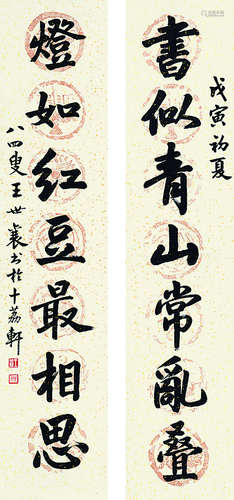 戊寅初夏
書似青山常亂叠
燈如紅豆最相思
八四叟王世襄书於十荔軒